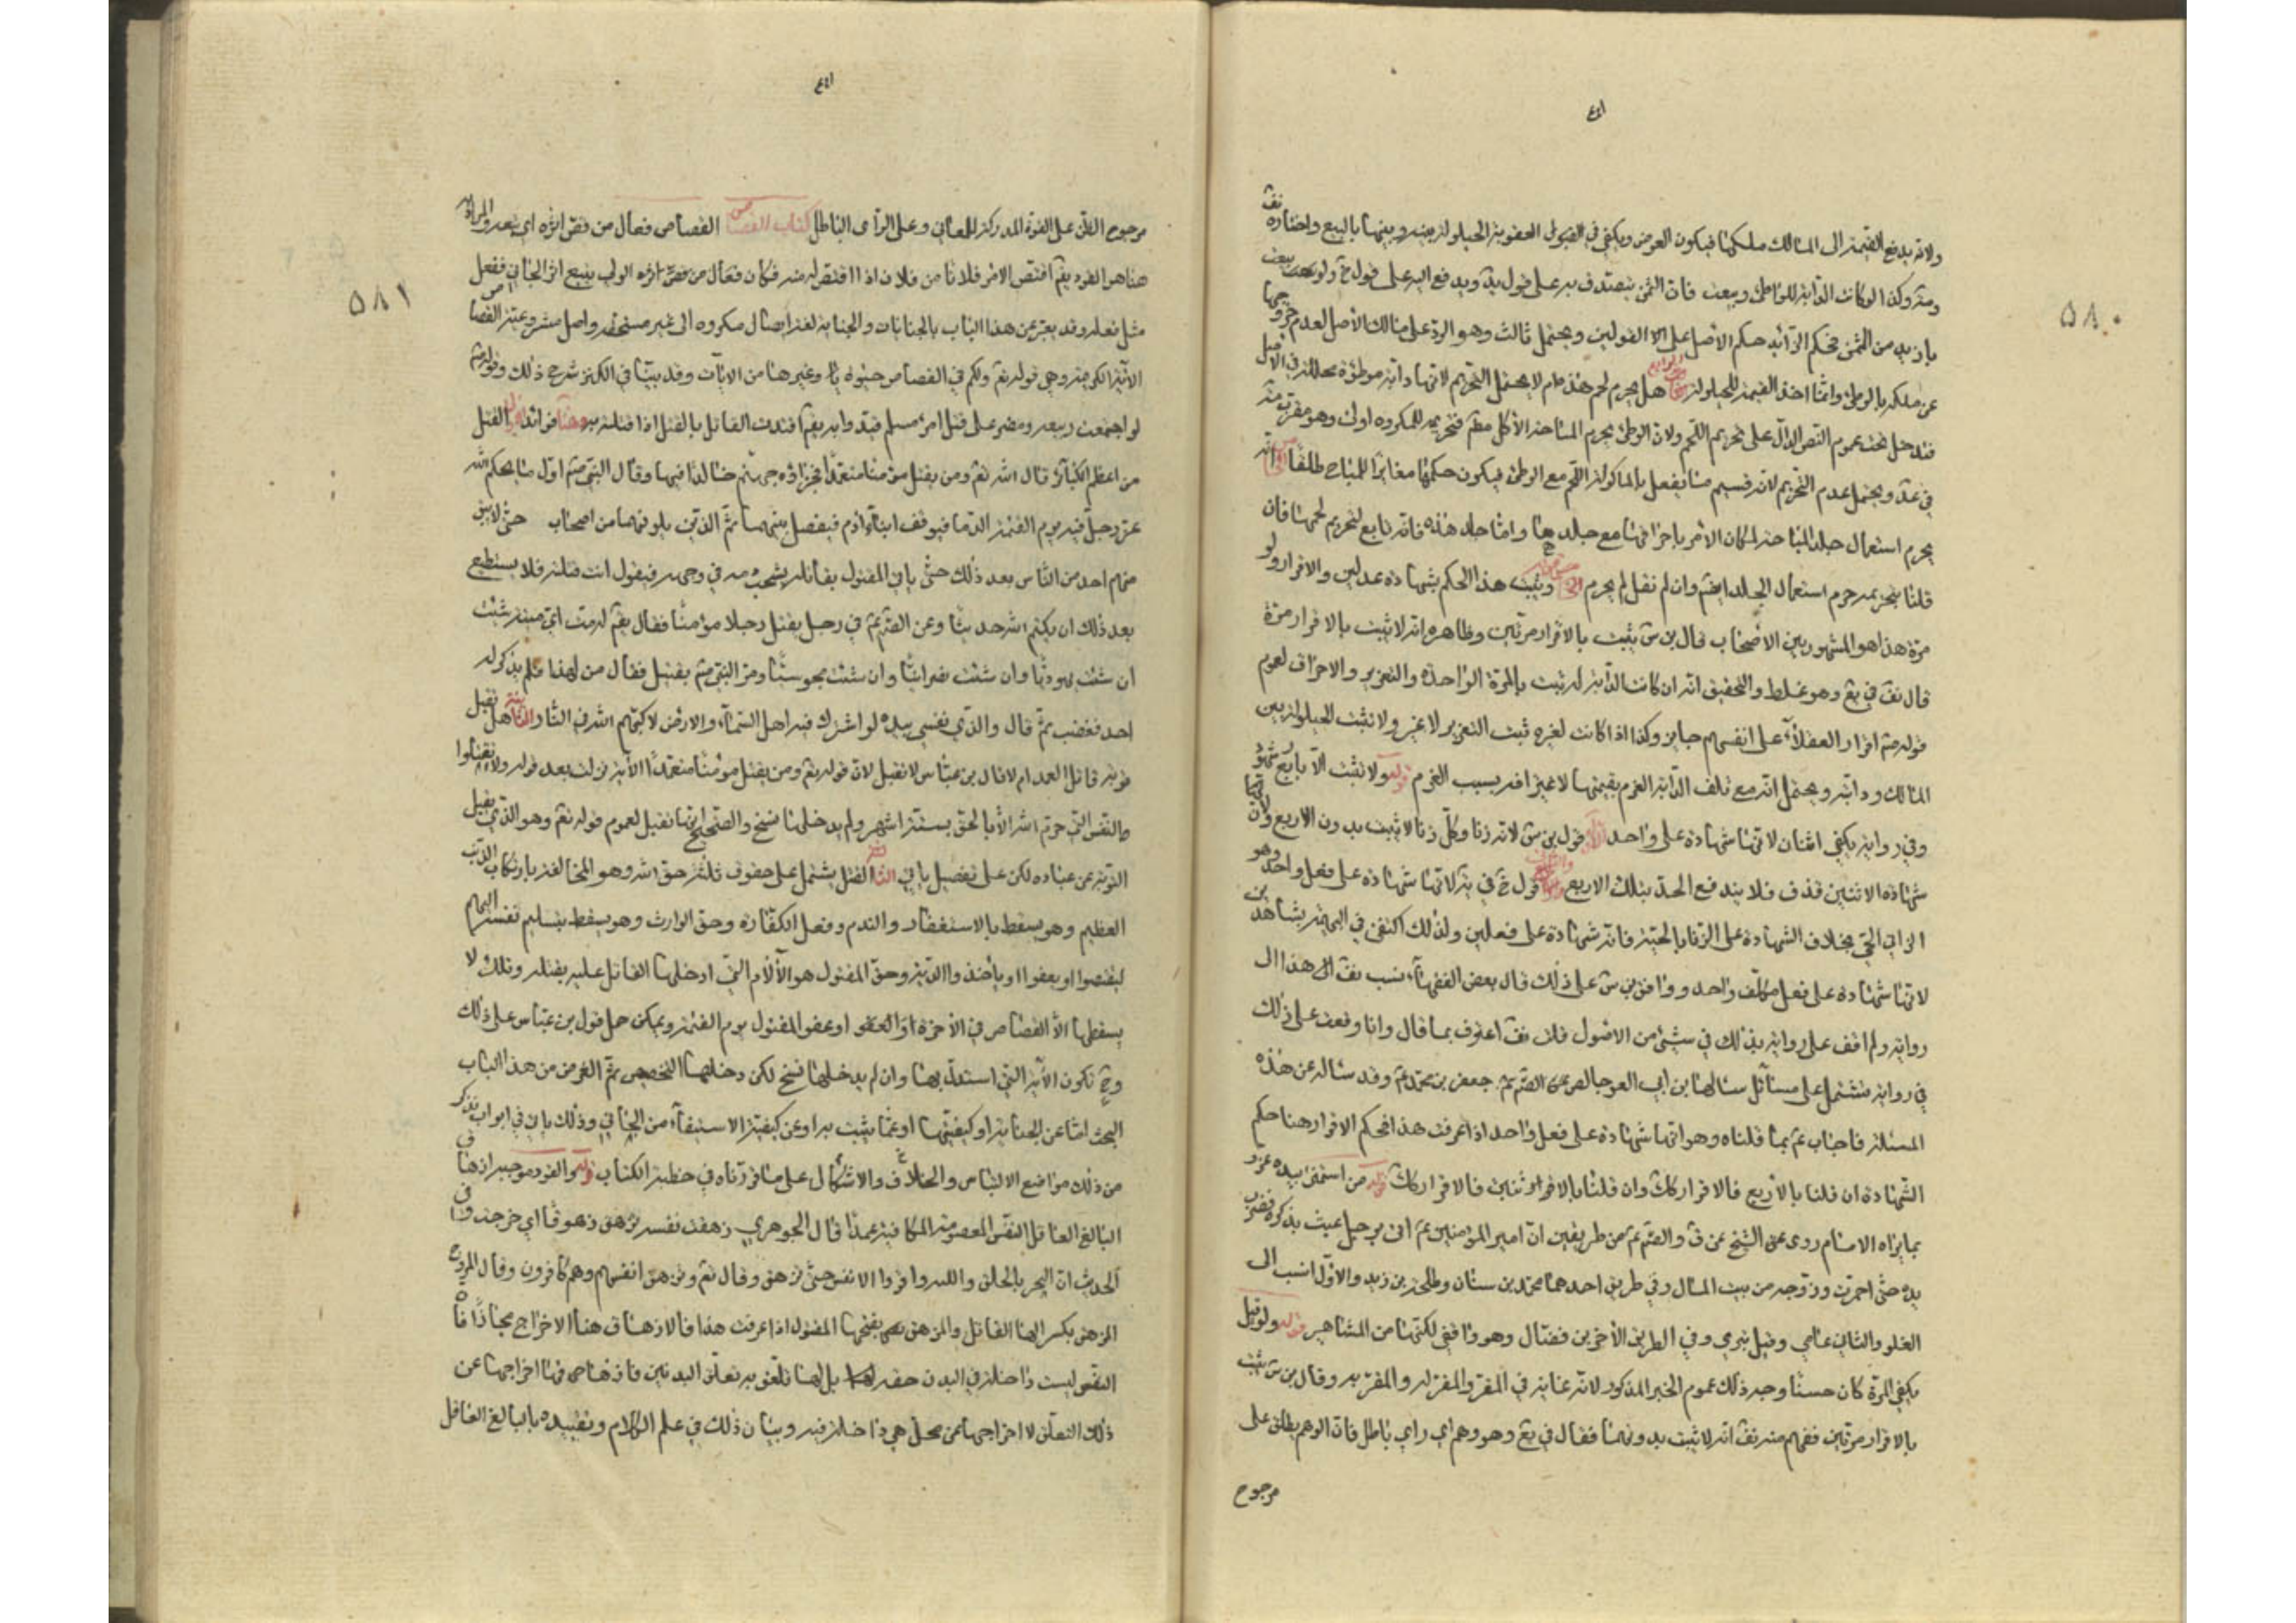 ٥٨٠
ولانه يدفع القيمة الى المالك ملكها فيكون العوض ويكفي في القبول العقوبة الحيلولة بينه وبينها بالبيع واختاره
وكذا لو كانت الدابة للواطئ وبيعت فان الثمن يتصدق به على قول يد ويدفع اليه على قول خ ولو بيعت
بازيد من الثمن فحكم الزائد حكم الأصل على القولين ويحتمل ثالث وهو الرد على مالك الأصل لعدم خروجها
عن ملكه بالوطئ وانما اخذ القيمة للحيلولة هل يحرم لحم هذه ام لا يحتمل التحريم لانها دابة موطؤة محللة في الاصل
فتدخل تحت عموم النص الدال على تحريم اللحم ولان الوطئ يحرم المباحة الأكل فتحريمه للمكروه اولى وهو
في عد ويحتمل عدم التحريم لانه قسيم ما يفعل بالماكولة اللحم مع الوطئ فيكون حكمها مغايرا للمباح مطلقا
يحرم استعمال جلد المباحة لمكان الأمر باحراقها مع جلدها واما جلد هذه فانه تابع لتحريم لحمها فان
قلنا بتحريمه حرم استعمال الجلد ايضا وان لم نقل لم يحرم ويثبت هذا الحكم بشهادة عدلين والاقرار ولو
مرة هذا هو المشهور بين الاصحاب قال بن س يثبت بالاقرار مرتين وظاهره انه لا يثبت بالاقرار مرة
قال نف في يع وهو غلط والتحقيق انه ان كانت الدابة له ثبت بالمرة الواحدة والتعزير والاحراق لعموم
قوله اقرار العقلاء على انفسهم جايز وكذا اذا كانت لغيره ثبت التعزير لا غير ولا تثبت الحيلولة بين
المالك ودابته ويحتمل انه مع تلف الدابة الغرم بقيمتها لا غير اقر بسبب الغرم قوله ولا تثبت الا باربع شهود
وفي رواية يكفي اثنان لانها شهادة على واحد قول بن س لانه زنا وكل زنا لا يثبت بدون الاربع ولان
شهادة الاثنين قذف فلا يندفع الحد بتلك الاربع قول خ في ية لانها شهادة على فعل واحد وهو
الزاني الحي بخلاف الشهادة على الزنا بالحية فانه شهادة على فعلين ولذلك اكتفى في البهيمة بشاهدين
لانها شهادة على فعل مكلف واحد ووافق بن س على ذلك قال بعض الفقهاء نسب نف الى هذا الى
رواية ولم اقف على رواية بذلك في شيء من الاصول قلت نف اعترف بما قال وانا وقعت على ذلك
في رواية تشتمل على مسائل سئالها بن ابي العوجا جعفر بن محمد ع وقد سئاله عن هذه
المسئلة فاجاب ع بما قلناه وهو انها شهادة على فعل واحد اذا عرفت هذا فحكم الاقرار هنا حكم
الشهادة ان قلنا بالأربع فالاقرار كك وان قلنا بالاثنين فالاقرار كك قوله من استمنى بيده عزر
بما يراه الامام روى الشيخ عن ق والص ع من طريقين ان امير المؤمنين ع اتى برجل عبث بذكره فضرب
يده حتى احمرت وزوجه من بيت المال وفي طريق احدهما محمد بن سنان وطلحة بن زيد والاول انسب الى
الغلو والثاني عامي وقيل بتري وفي الطريق الأخر بن فضال وهو واقفي لكنها من المشاهير قوله ولو قيل
يكفي المرة كان حسنا وجه ذلك عموم الخبر المذكور لانه عناية في المقر والمقر له والمقر به وقال بن س يثبت
بالاقرار مرتين ففهم منه نف انه لا يثبت بدونها فقال في يع وهو وهم اي راي باطل فان الوهم يطلق على
مرجوح
٥٨١
مرجوح الظن على القوة المدركة للمعاني وعلى الراى الباطل كتاب القصاص القصاص فعال من قص اثره اي تبعه والمراد
هنا هو القود يقم اقتص الامر فلانا من فلان اذا اقتص له منه فكان فعال من قص اثره الولي يتبع اثر الجاني ففعل
مثل فعله وقد يعبر عن هذا الباب بالجنايات والجناية لغة ايصال مكروه الى غير مستحقه واصل مشروعية القصاص
الآية الكريمة وهي قوله تع ولكم في القصاص حيوة يا وغيرها من الايات وقد بينا في الكنز شرح ذلك وقوله
لو اجتمعت ربيعة ومضر على قتل امرئ مسلم قيدوا به يقم اقدت القاتل بالقتل اذا قتلته به وهنا فوائد القتل
من اعظم الكبائر قال الله تع ومن يقتل مؤمنا متعمدا فجزاؤه جهنم خالدا فيها وقال النبي اول ما يحكم الله
عز وجل فيه يوم القيمة الدما فيوقف ابناء آدم فيفصل بينهما ثم الذين يلونهما من اصحاب حتى لا يبقى
منهم احد من الناس بعد ذلك حتى ياتي المقتول بقاتله يشخب دمه في وجهه فيقول انت قتلته فلا يستطيع
بعد ذلك ان يكتم الله حديثا وعن الص ع في رجل يقتل رجلا مؤمنا فقال يقم له مت اي ميتة شئت
ان شئت يهوديا وان شئت نصرانيا وان شئت مجوسيا ومر النبي بقتيل فقال من لهذا فلم يذكر له
احد فغضب ثم قال والذي نفسي بيده لو اشترك فيه اهل السماء والارض لاكبهم الله في النار الثانية هل تقبل
توبة قاتل العمد ام لا قال بن عباس لا تقبل لان قوله تع ومن يقتل مؤمنا متعمدا الآية نزلت بعد قوله ولا تقتلوا
النفس التي حرم الله الا بالحق بستة اشهر ولم يدخلها نسخ والصحيح انها تقبل لعموم قوله تع وهو الذي يقبل
التوبة عن عباده لكن على تفصيل ياتي الثالثة القتل يشتمل على حقوق ثلثة حق الله وهو المخالفة بارتكاب الذنب
العظيم وهو يسقط بالاستغفار والندم وفعل الكفارة وحق الوارث وهو يسقط بتسليم نفسه اليهم
ليقتصوا او يعفوا او ياخذوا الدية وحق المقتول هو الآلام التي ادخلها القاتل عليه بقتله وتلك لا
يسقطها الا القصاص في الأخرة او العفو او عفو المقتول يوم القيمة ويمكن حمل قول بن عباس على ذلك
وح تكون الآية التي استدل بها وان لم يدخلها نسخ لكن دخلها التخصيص ثم الغرض من هذا الباب
البحث اما عن الجناية او كيفيتها او عما يثبت به او عن كيفية الاستيفاء من الجاني وذلك ياتي في ابواب نذكر
من ذلك مواضع الالتباس والخلاف والاشكال على ما قررناه في خطبة الكتاب قوله والقود موجبه ازهاق
البالغ العاقل النفس المعصومة المكافية عمدا قال الجوهري زهقت نفسه تزهق زهوقا اي خرجت وفي
الحديث ان النحر بالحلق واللبه واقروا الانفس حتى تزهق وقال تع وتزهق انفسهم وهم كافرون وقال المؤرج
المزهق بكسر الهاء القاتل والمزهق بفتحها المقتول اذا عرفت هذا فالازهاق هنا الاخراج مجازا فان
النفس ليست داخلة في البدن حقيقة بل لها تعلق به تعلق البدنين فازهاقها اخراجها عن
ذلك التعلق لا اخراجها عن محل هي داخلة فيه وبيان ذلك في علم الكلام وتقييده بالبالغ العاقل